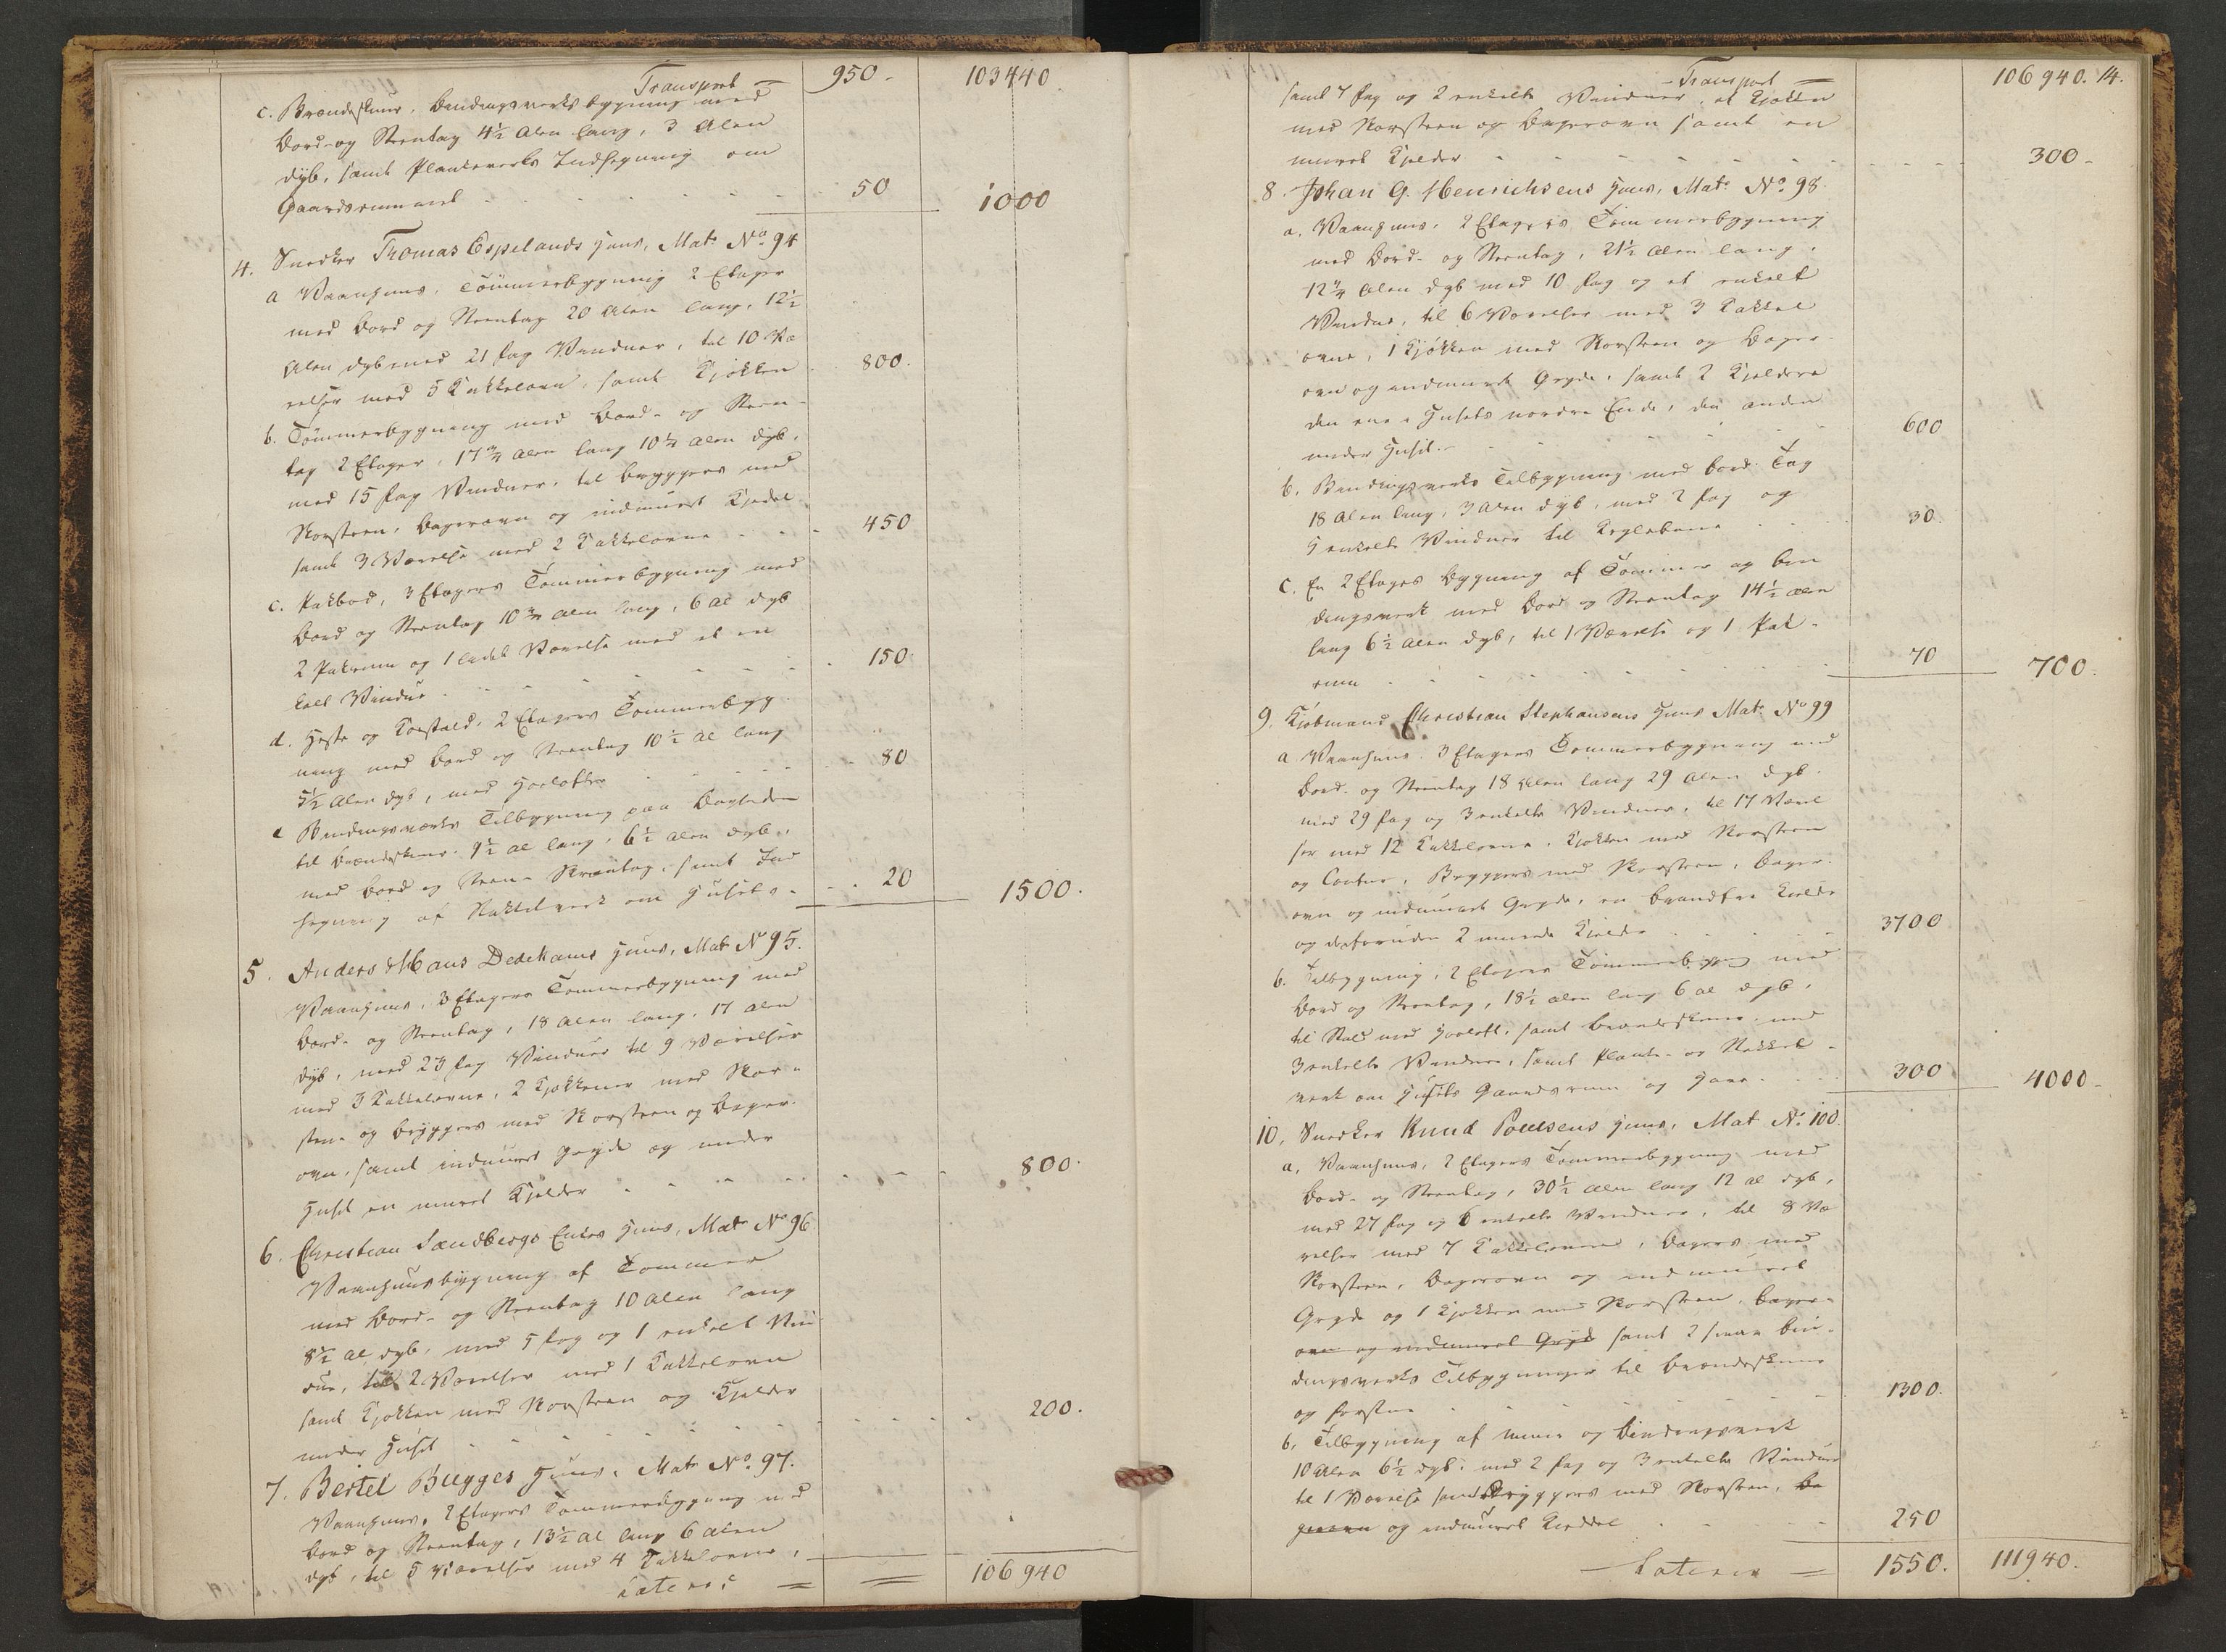 Transport = 950- 103440
c. Brændeskuur, Bindingsverks bygning med
Bord- og Steentag 4½ Alen lang, 3 Alen
dyb, samt Plankeverks Indhegning om
Gaardsrummet - - - - 50 1000
4. Snedker Thomas Espelands Huus, Mat: No. 94
a Vaanhuus, Tömmerbygning 2 Etager
med Bord og Steentag 20 Alen lang, 12½
Alen dyb med 21 fag Vinduer, til 10 Væ
relser med 5 Kakkelovn, samt Kjökken 800.
b. Tömmerbygning med Bord- og Steen-
tag 2 Etager, 17¾ Alen lang 10¼ Alen dyb,
med 15 fag Vinduer, til Bryggers med
Skorsteen, Bagerovn og indmuret Kjedel
samt 3 Værelse med 2 Kakkelovne - - - 450
c. Pakbod, 3 Etagers Tömmerbygning med
Bord og Steentag 10¾ Alen lang, 6 Al dyb
2 Pakrum og 1 Værelse med et en
kelt Vindue - - - - 150
d. Heste og Koestald, 2 Etagers Tömmerbyg-
ning med Bord og Steentag 10½ Al lang
5½ Alen dyb, med Höeloft - - - 80
e Bindingsverks Tilbygning paa Bagsiden
til Brændeskuur 9½ al lang, 6½ Alen dyb,
med Bord og Steen- Skraatag, samt Ind
hegning af Stakkitverk om Huset - - 20 1500.
5. Anders & Hans Dedekams Huus, Mat No 95.
Vaanhuus, 3 Etagers Tömmerbygning med
Bord- og Steentag, 18 Alen lang, 17 Alen
dyb, med 23 fag Vinduer til 9 Værelser
med 3 Kakkelovne, 2 Kjökkener med Skor-
steen og Bryggers med Skorsteen og Bager-
ovn, samt indmuret Gryde og under
Huset en muret Kjelder - - - 800.
6. Christian Sandbergs Enkes Huus, Mat: No 96
Vaanhuusbygning af Tömmer
med Bord- og Steentag 10 Alen lang
8½ Al dyb, med 5 fag og 1 enkelt Vin
due, til 2 Værelser med 1 Kakkelovn
samt Kjökken med Skorsteen og Kjelder
under Huset - - - - 200.
7. Bertel Bugges Huus, Mat: No. 97.
Vaanhuus, 2 Etagers Tömmerbygning med
Bord og Steentag, 13½ Al lang 6 Alen
dyb, til 5 Værelser med 4 Kakkelovne,
Lateris = 106940
Transport = 106940. 14.
samt 7 fag og 2 enkelte Vinduer, et Kjökken
med Skorsteen og Bagerovn samt en
muret Kjelder - - - - 300-
8. Johan G. Henrichsens Huus, Mat: No. 98.
a. Vaanhuus, 2 Etagers Tömmerbygning
med Bord- og Steentag, 21½ Alen lang,
12¾ Alen dyb med 10 fag og et enkelt
Vindue, til 6 Værelser med 3 Kakkel
ovne, 1 Kjökken med Skorsteen og Bager-
ovn og indmuret Gryde, samt 2 Kjeldere
den ene i Husets nordre Ende, den anden
under Huset - - - 600
b. Bindingsverks Tilbygning med Bord-Tag
18 Alen lang, 3 Alen dyb, med 2 fag og
5 enkelte Vinduer til Keglebane - - 30.
c. En 2 Etages Bygning af Tömmer og Bin
dingsverk med Bord og Steentag 14½ Alen
lang 6½ Alen dyb, til 1 Værelse og 1 Pak-
rum - - - - 70 700.
9. Kjöbmand Christian Stephansens Huus Mat: No 99
a. Vaanhuus. 3 Etagers Tömmerbygning med
Bord- og Steentag 18 Alen lang 29 Alen dyb.
med 29 fag og 3 enkelte Vinduer, til 17 Værel
ser med 12 Kakkelovne, Kjökken med Skorsteen
og Contor, Bryggers med Skorsteen, Bager-
ovn og indmuret Gryde, en brandfri Kjelder
og desforuden 2 murede Kjeldre - - 3700
b. Tilbygning, 2 Etagers Tömmerbygning med
Bord og Steentag, 18½ Alen lang 6 al dyb,
til Stald med Höeloft, samt Brændeskuur med
3 enkelte Vinduer, samt Planke- og Stakket-
verk om Husets Gaardsrum og Have - - 300 4000-
10. Snedker Knud Poulsens Huus, Mat No. 100.
a. Vaanhuus, 2 Etagers Tömmerbygning med
Bord- og Steentag, 30½ Alen lang 12 al dyb,
med 27 fag og 6 enkelte Vinduer, til 8 Væ
relser med 7 Kakkelovne, Bagers med
Skorsteen, Bagerovn og indmuret
Gryde og 1 Kjökken med Skorsteen, Bager-
ovn og indmuret Gryde samt 2 smaa Bin-
dingsverks Tilbygninger til Brændeskuur
og - - - 1300.
b. Tilbygning af Muur og Bindingsverk
10 Alen 6½ dyb, med 2 fag og 3 enkelte Vinduer
til 1 Værelse samt Bryggers med Skorsteen, Ba
gerovn og indmuret Kjeddel - - 250
Lateris = 1550. 111940.